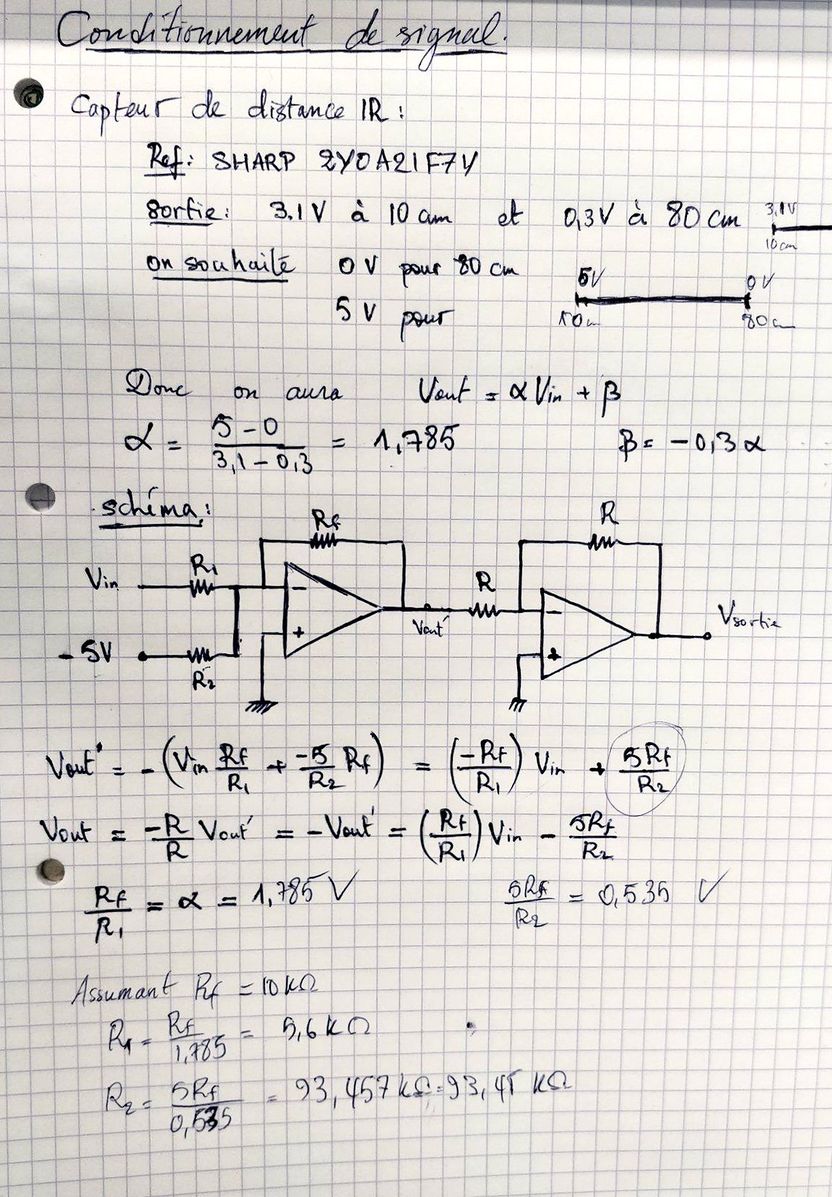 Conditionnement de signal.
Capteur de distance IR :
Ref: SHARP 2Y0A21F7Y
Sortie: 3.1V à 10 cm et 0,3V à 80 cm 3.1V
10cm
on souhaite 0V pour 80 cm 5V 0V
5V pour 10cm 80cm
Donc on aura Vout = αVin + β
α = (5-0)/(3,1-0,3) = 1,785 β = -0,3α
schéma:
Rf R
Vin R1 - R -
Vout' Vsortie
-5V + +
R2
Vout' = -(Vin Rf/R1 + -5/R2 Rf) = (-Rf/R1) Vin + 5Rf/R2
Vout = -R/R Vout' = -Vout' = (Rf/R1) Vin - 5Rf/R2
Rf/R1 = α = 1,785 V 5Rf/R2 = 0,535 V
Assumant Rf = 10kΩ
R1 = Rf/1,785 = 5,6kΩ
R2 = 5Rf/0,535 = 93,457kΩ = 93,45 kΩ